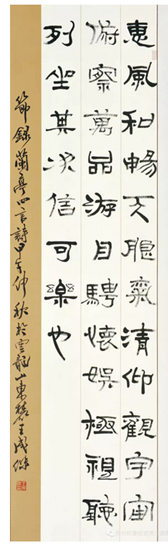 惠風和暢天朗氣清仰觀宇宙
俯察萬品游目騁懷娛極視聽
列坐其次信可樂也
節錄蘭亭四言詩甲午仲秋於雲龍山東麓王成